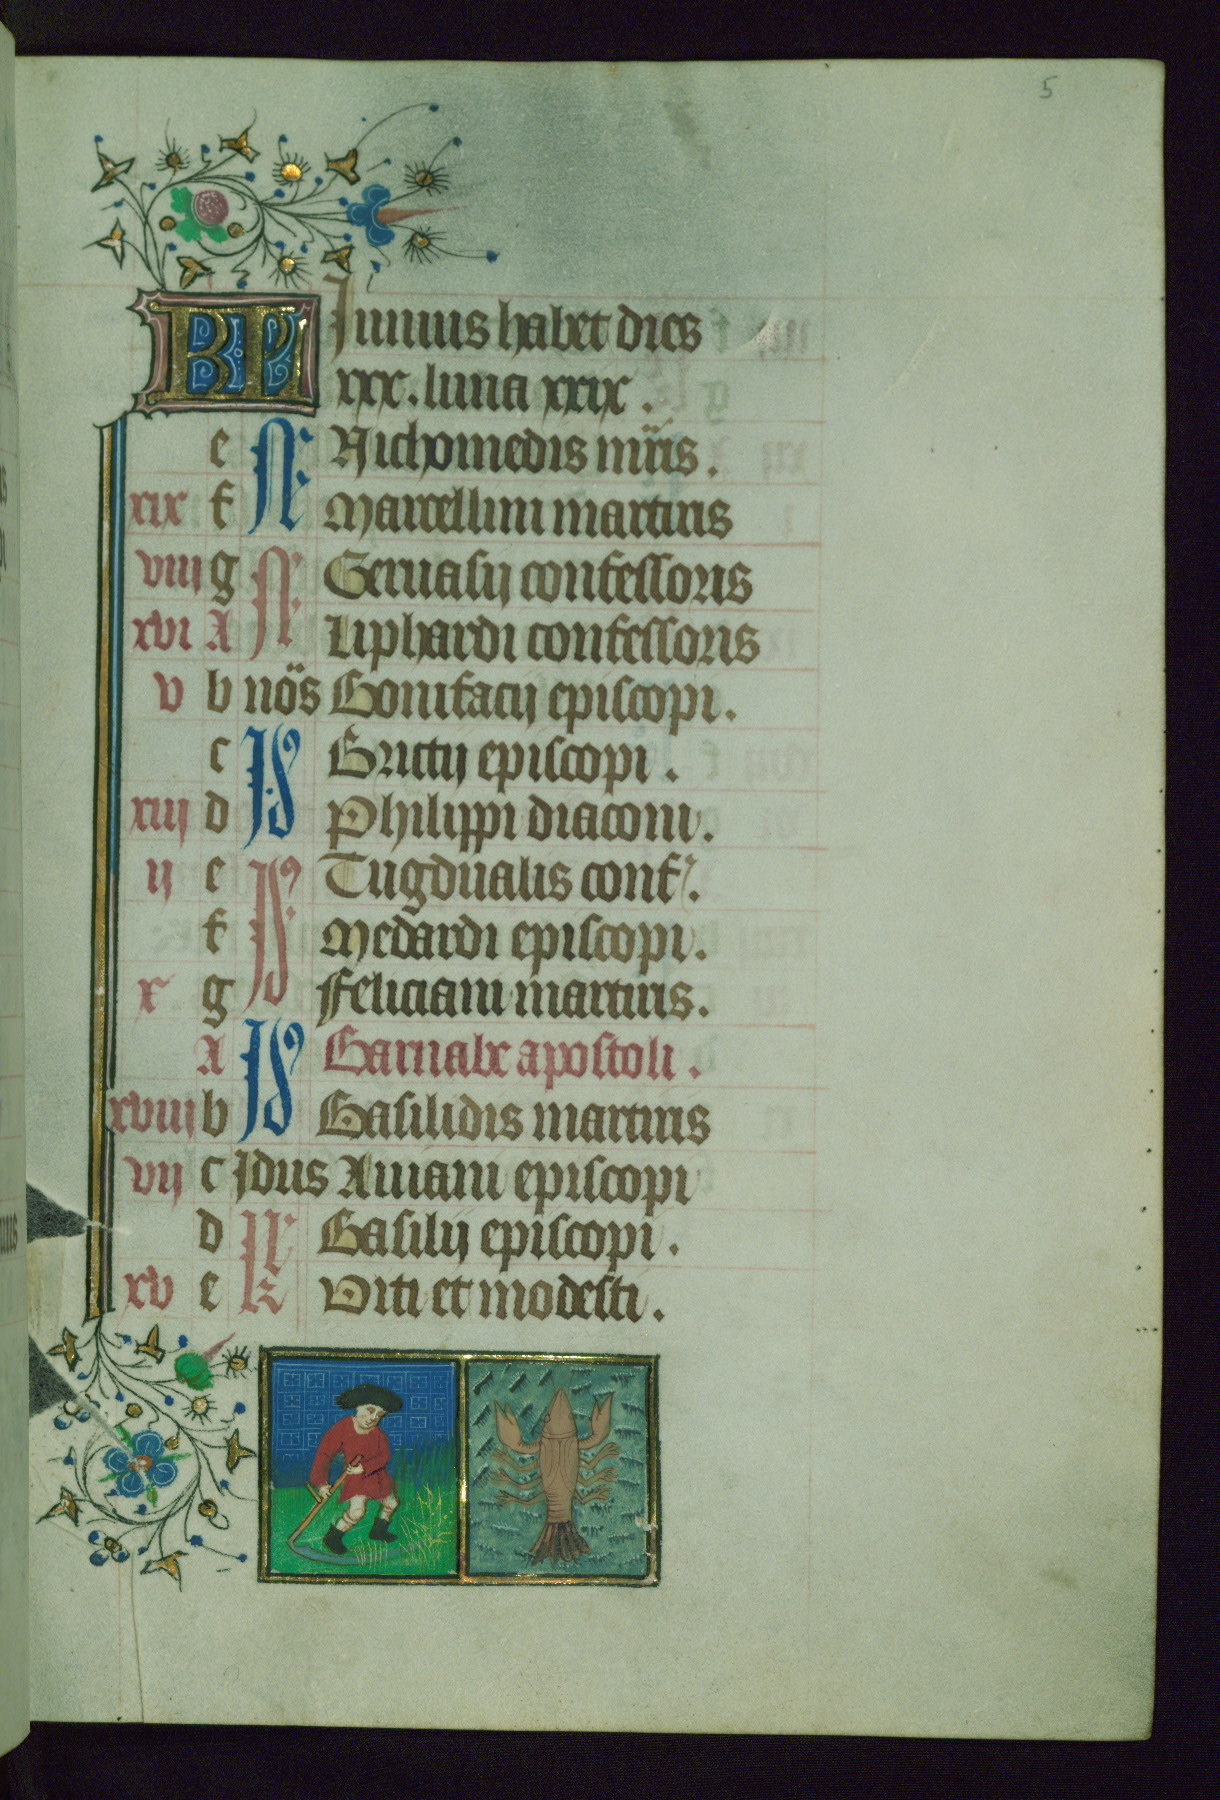 5
KL Junius habet dies
xxx. luna xxix.
e N Nichomedis mr̃is.
xix f Marcellini martiris
viii g N Geruasij confessoris
xvi A Liphardi confessoris
v b nõs Bonifacij episcopi.
c Id Brictij episcopi.
xiii d Philippi diaconi.
ij e Id Tugdualis conf.
f Medardi episcopi.
x g Feliciani martiris.
A Id Barnabe apostoli.
xviii b Basilidis martiris
vij c Jdus Auiani episcopi
d kł Basilij episcopi.
xv e Viti et modesti.